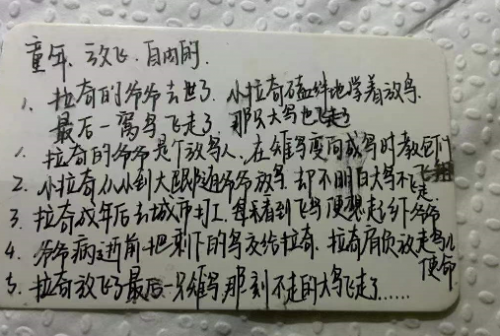 童年、放飞、自由的
1、拉奇的爷爷去世了、小拉奇磕绊地学着放鸟、
最后一窝鸟飞走了、那只大鸟也飞走了
1、拉奇的爷爷是个放鸟人、在雏鸟变向成鸟时教它们飞翔
2、小拉奇从小到大跟随爷爷放鸟、却不明白大鸟不飞走
3、拉奇成年后去城市打工、每看到飞鸟便想起乡下爷爷
4、爷爷病逝前把剩下的鸟交给拉奇、拉奇肩负放走鸟儿使命
5、拉奇放飞了最后一只雏鸟,那刻不走的大鸟飞走了……